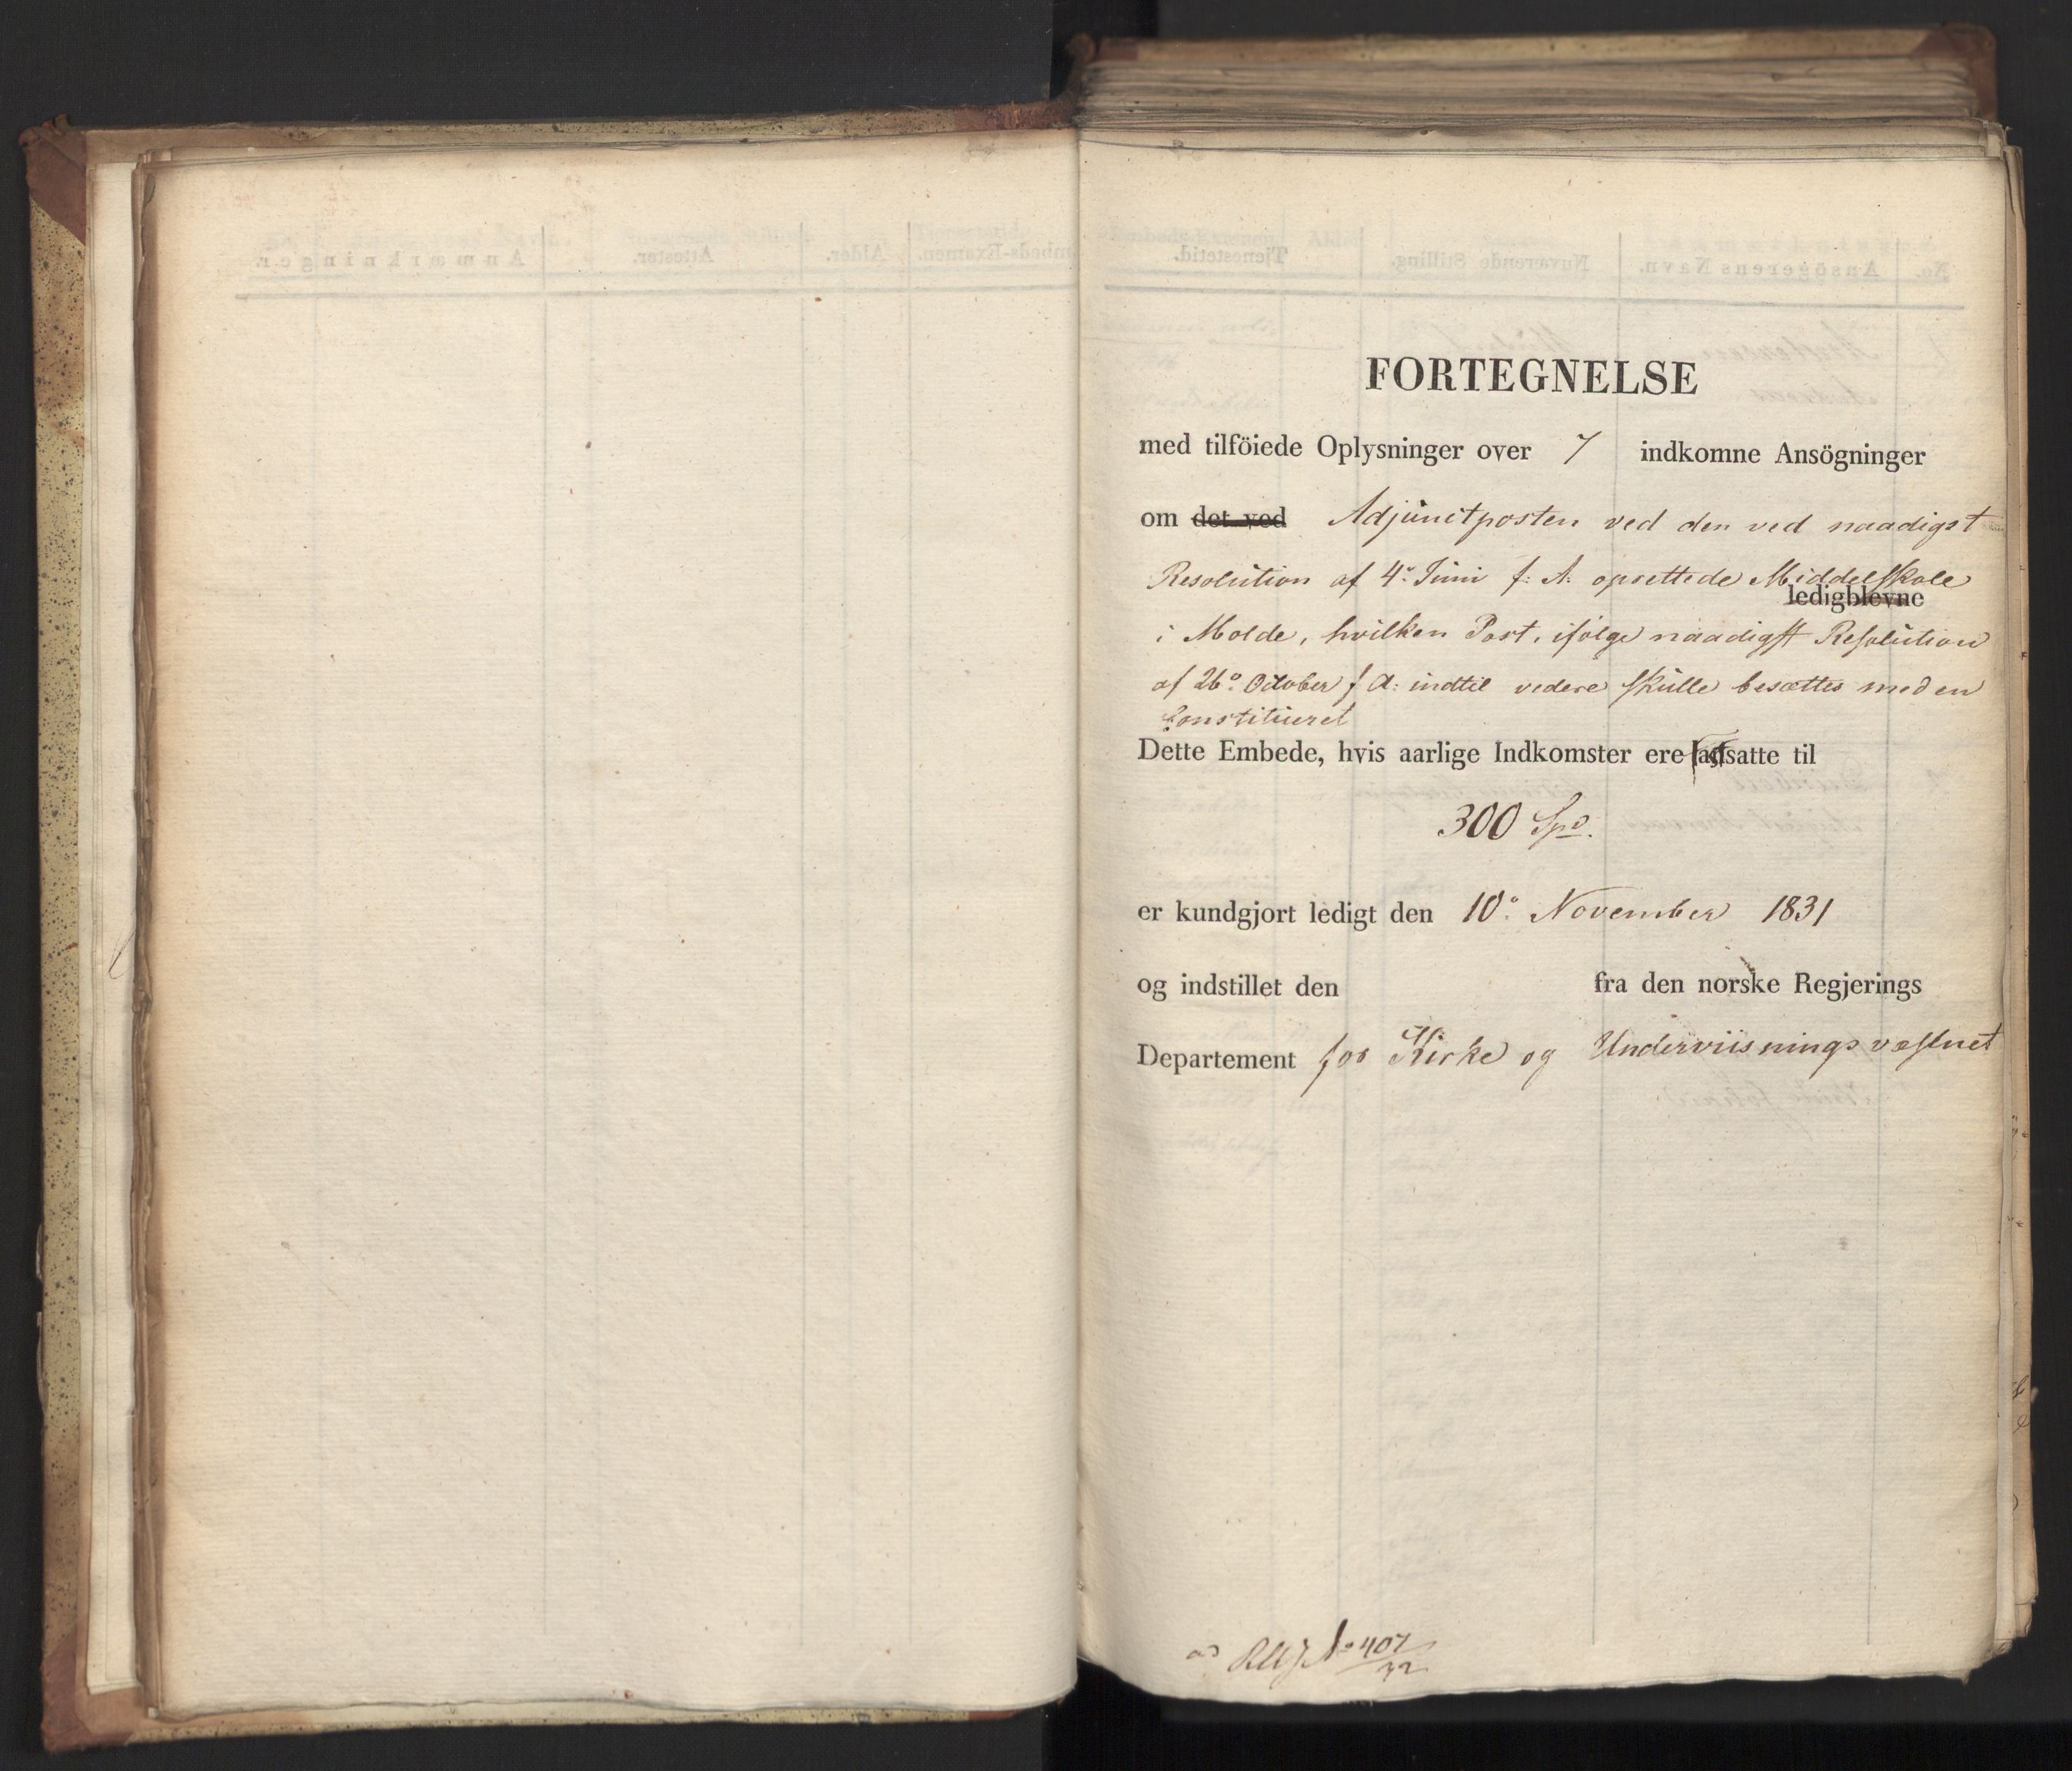 FORTEGNELSE
med tilföiede Oplysninger over 7 indkomne Ansögninger
om det ved Adjunctposten ved den ved naadigst
Resolution af 4de Juni f: A: oprettede Middelskole
ledigblevne
i Molde, hvilken Post, ifølge naadigst Resolution
af 26de October f A: indtil videre skulle besættes med en
Constitueret
Dette Embede, hvis aarlige Indkomster ere satte til
300 Spd.
er kundgjort ledigt den 10de November 1831
og indstillet den fra den norske Regjerings
Departement for Kirke og Underviisningsvæsnet
ad No 407/32
No.
Ansögerens Navn.
Nuværende Stilling.
Tjenestetid.
Embeds-Examen.
Alder.
Attester.
Anmærkninger.